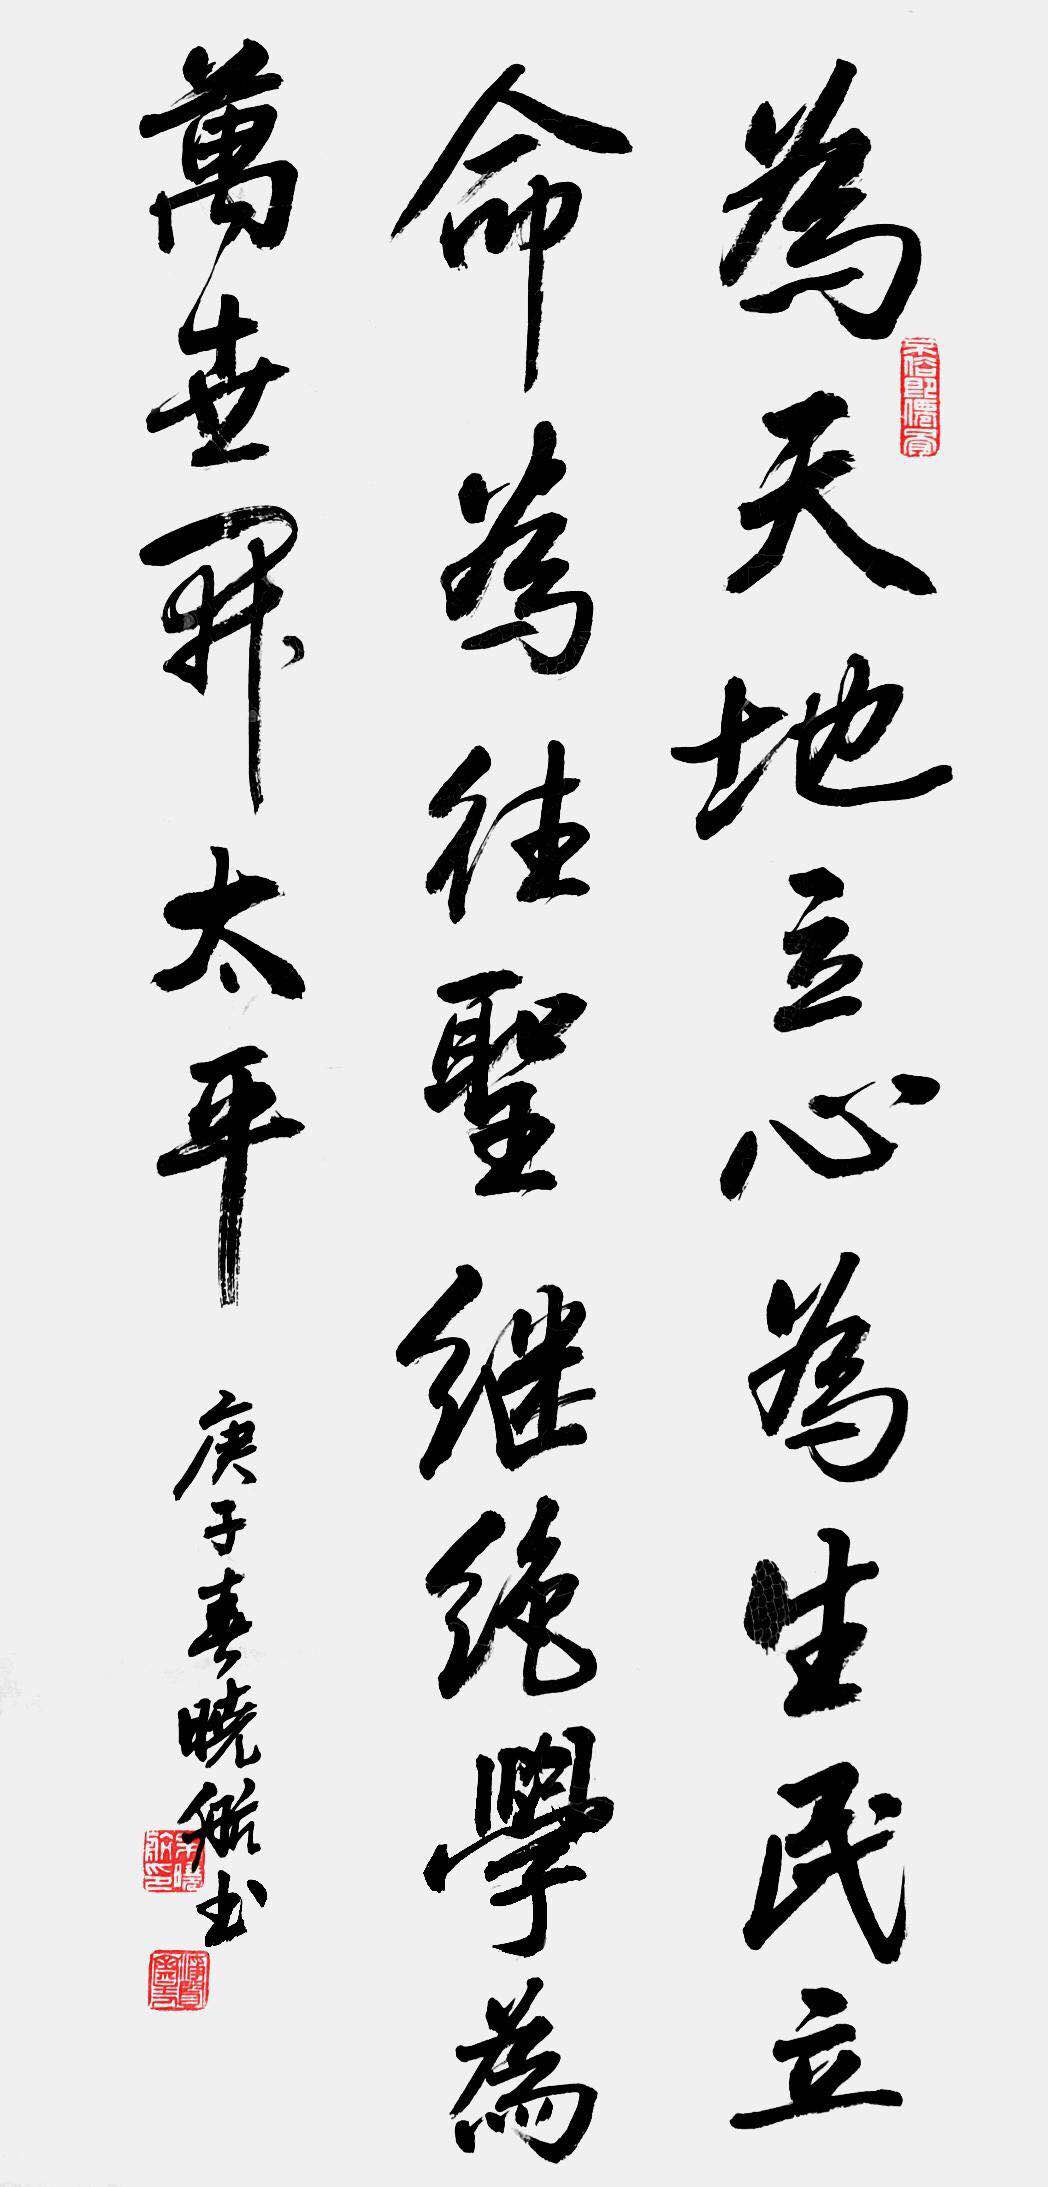 為天地立心為生民立
命為往聖继绝學為
萬世開太平
庚子春曉航书